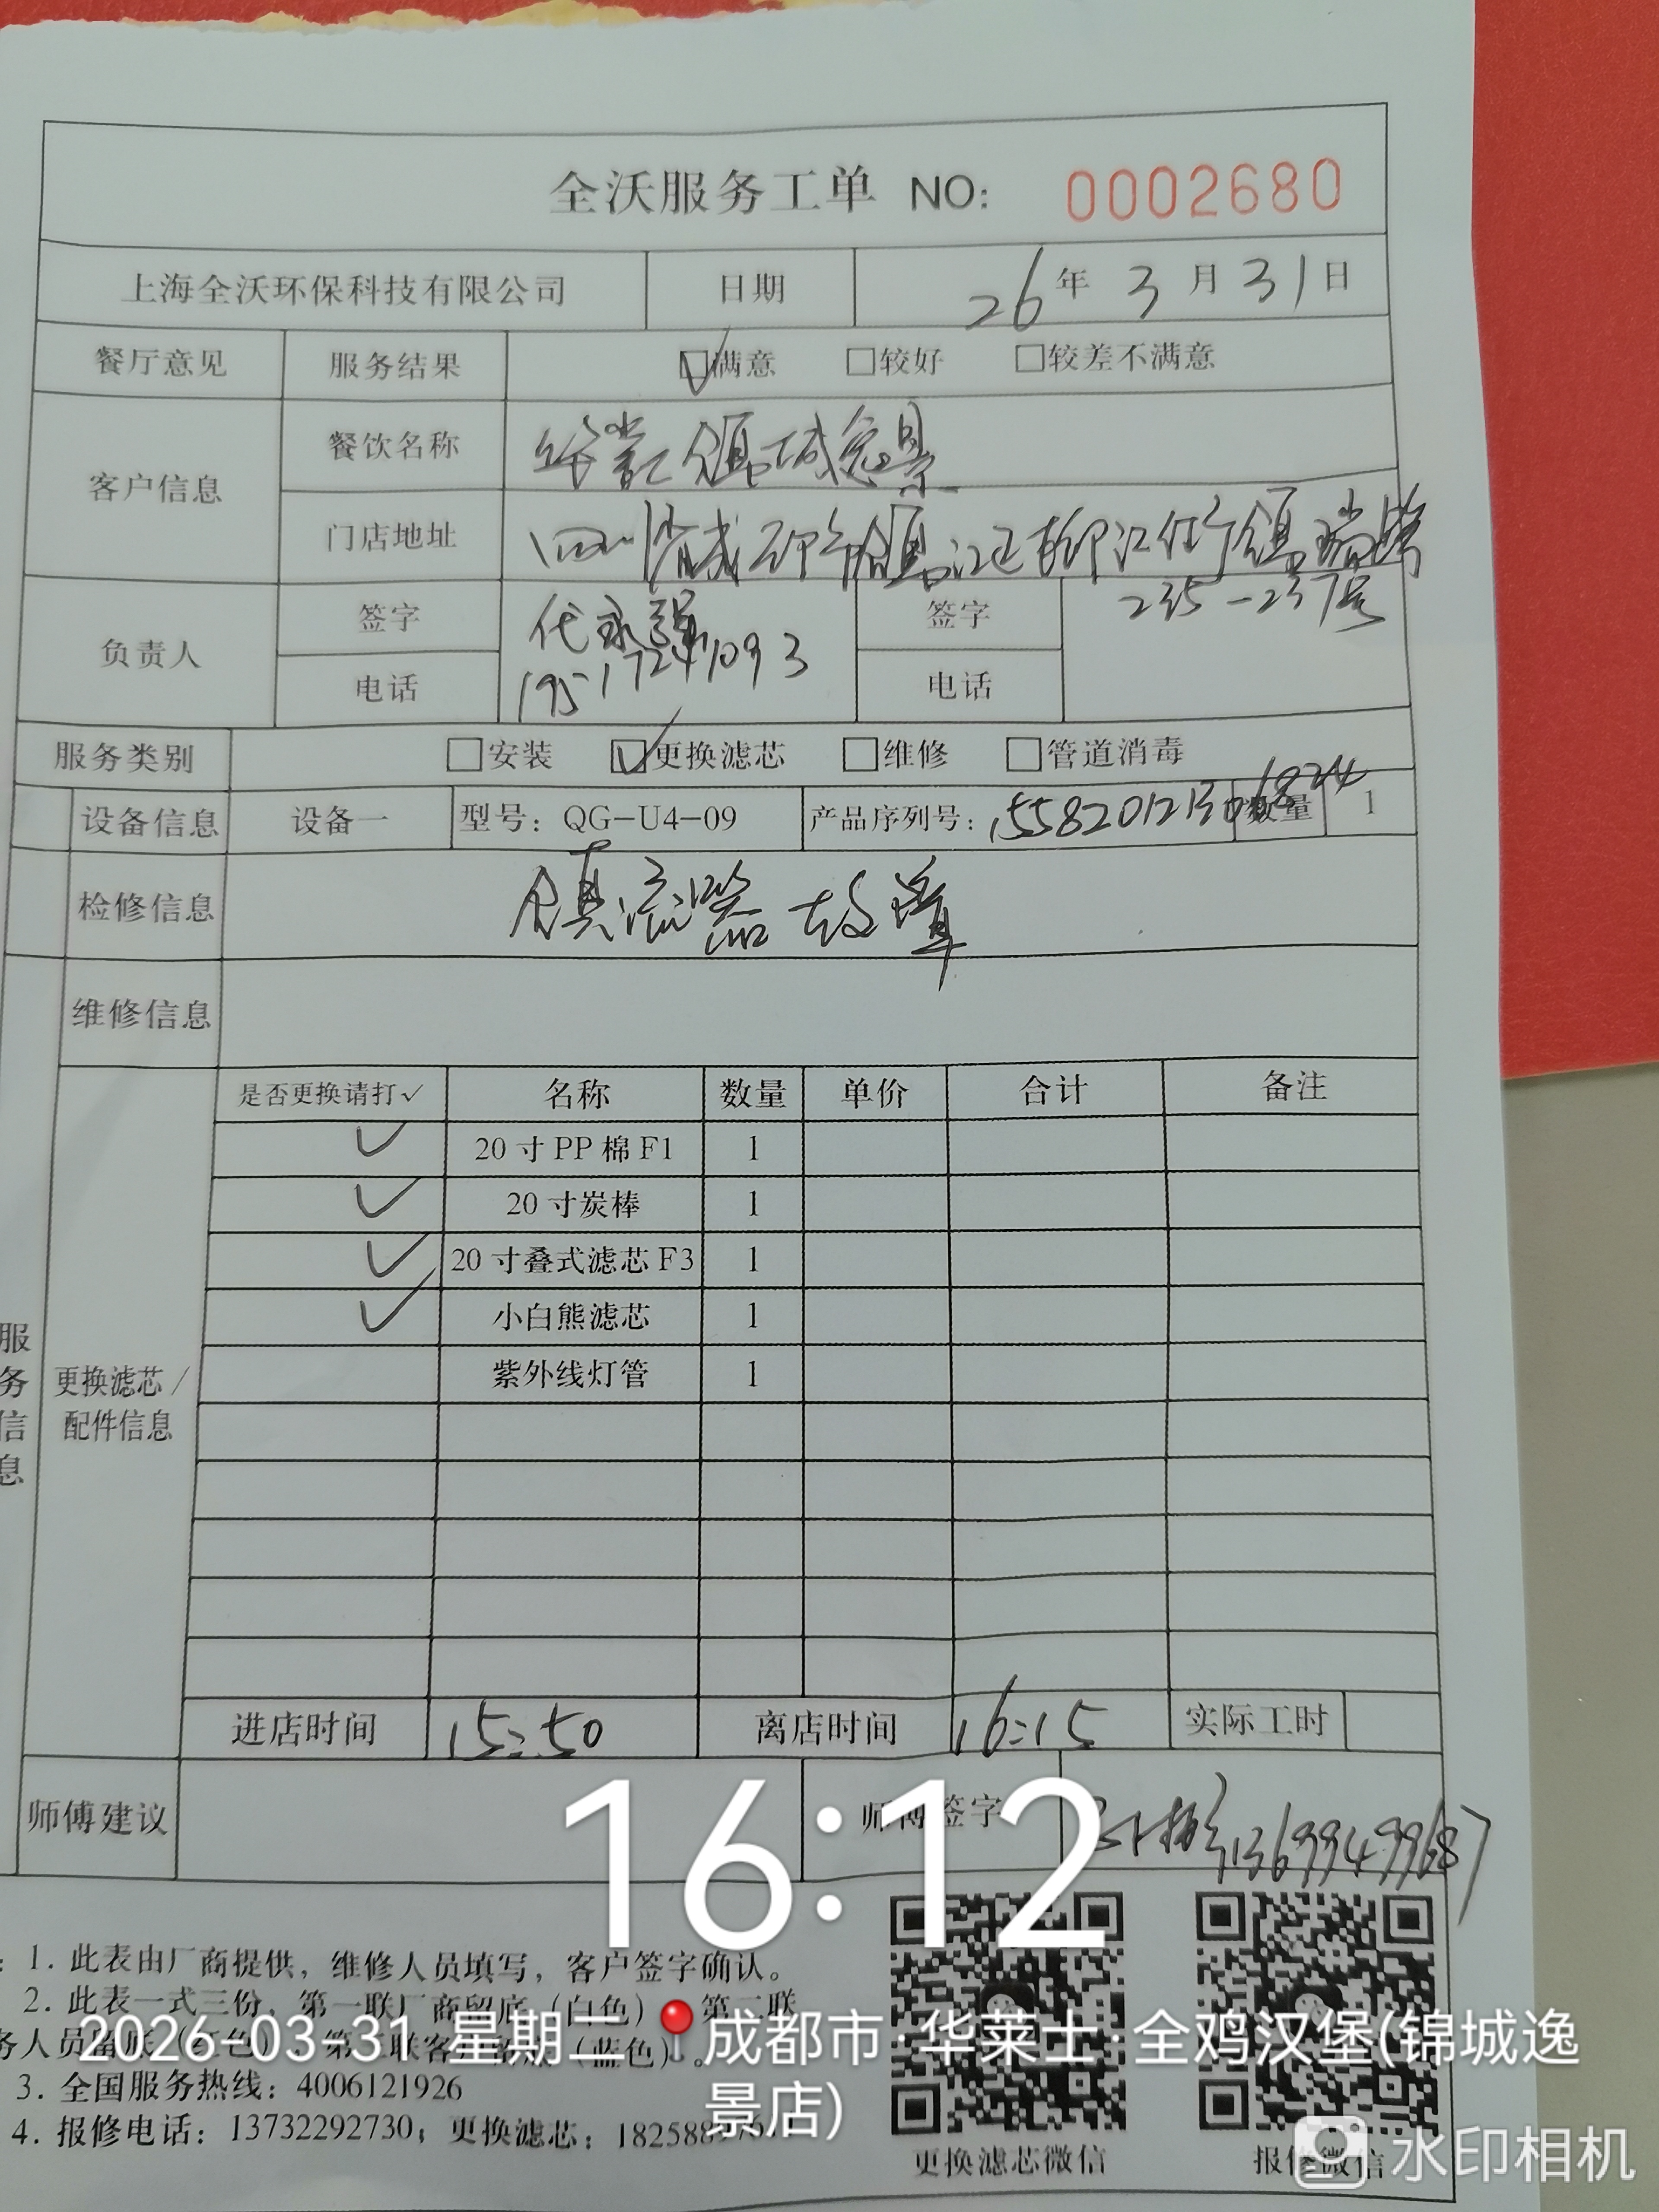 全沃服务工单 NO: 0002680
上海全沃环保科技有限公司 日期 26年3月31日
餐厅意见 服务结果 ☑满意 □较好 □较差不满意
客户信息 餐饮名称 锦城逸景
门店地址 四川省成都市锦江区柳江街
235-237号
负责人 签字 代永强 签字
电话 19517241093 电话
服务类别 □安装 ☑更换滤芯 □维修 □管道消毒
设备信息 设备一 型号: QG-U4-09 产品序列号: 数量 1
检修信息 镇流器故障
维修信息
服务信息
更换滤芯/配件信息
是否更换请打✓ 名称 数量 单价 合计 备注
✓ 20寸PP棉F1 1
✓ 20寸炭棒 1
✓ 20寸叠式滤芯F3 1
✓ 小白熊滤芯 1
紫外线灯管 1
进店时间 15:50 离店时间 16:15 实际工时
师傅建议 师傅签字 13699499687
16:12
: 1. 此表由厂商提供，维修人员填写，客户签字确认。
2. 此表一式三份，第一联厂商留底（白色），第二联
务人员留底（红色），第三联客户（蓝色）。
2026-03-31 星期二 成都市·华莱士·全鸡汉堡(锦城逸
景店)
3. 全国服务热线: 4006121926
4. 报修电话: 13732292730; 更换滤芯: 182588
更换滤芯微信 报修微信
水印相机